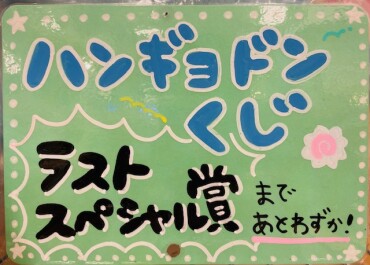 ハンギョドン
くじ
ラスト
スペシャル賞
まで
あとわずか!